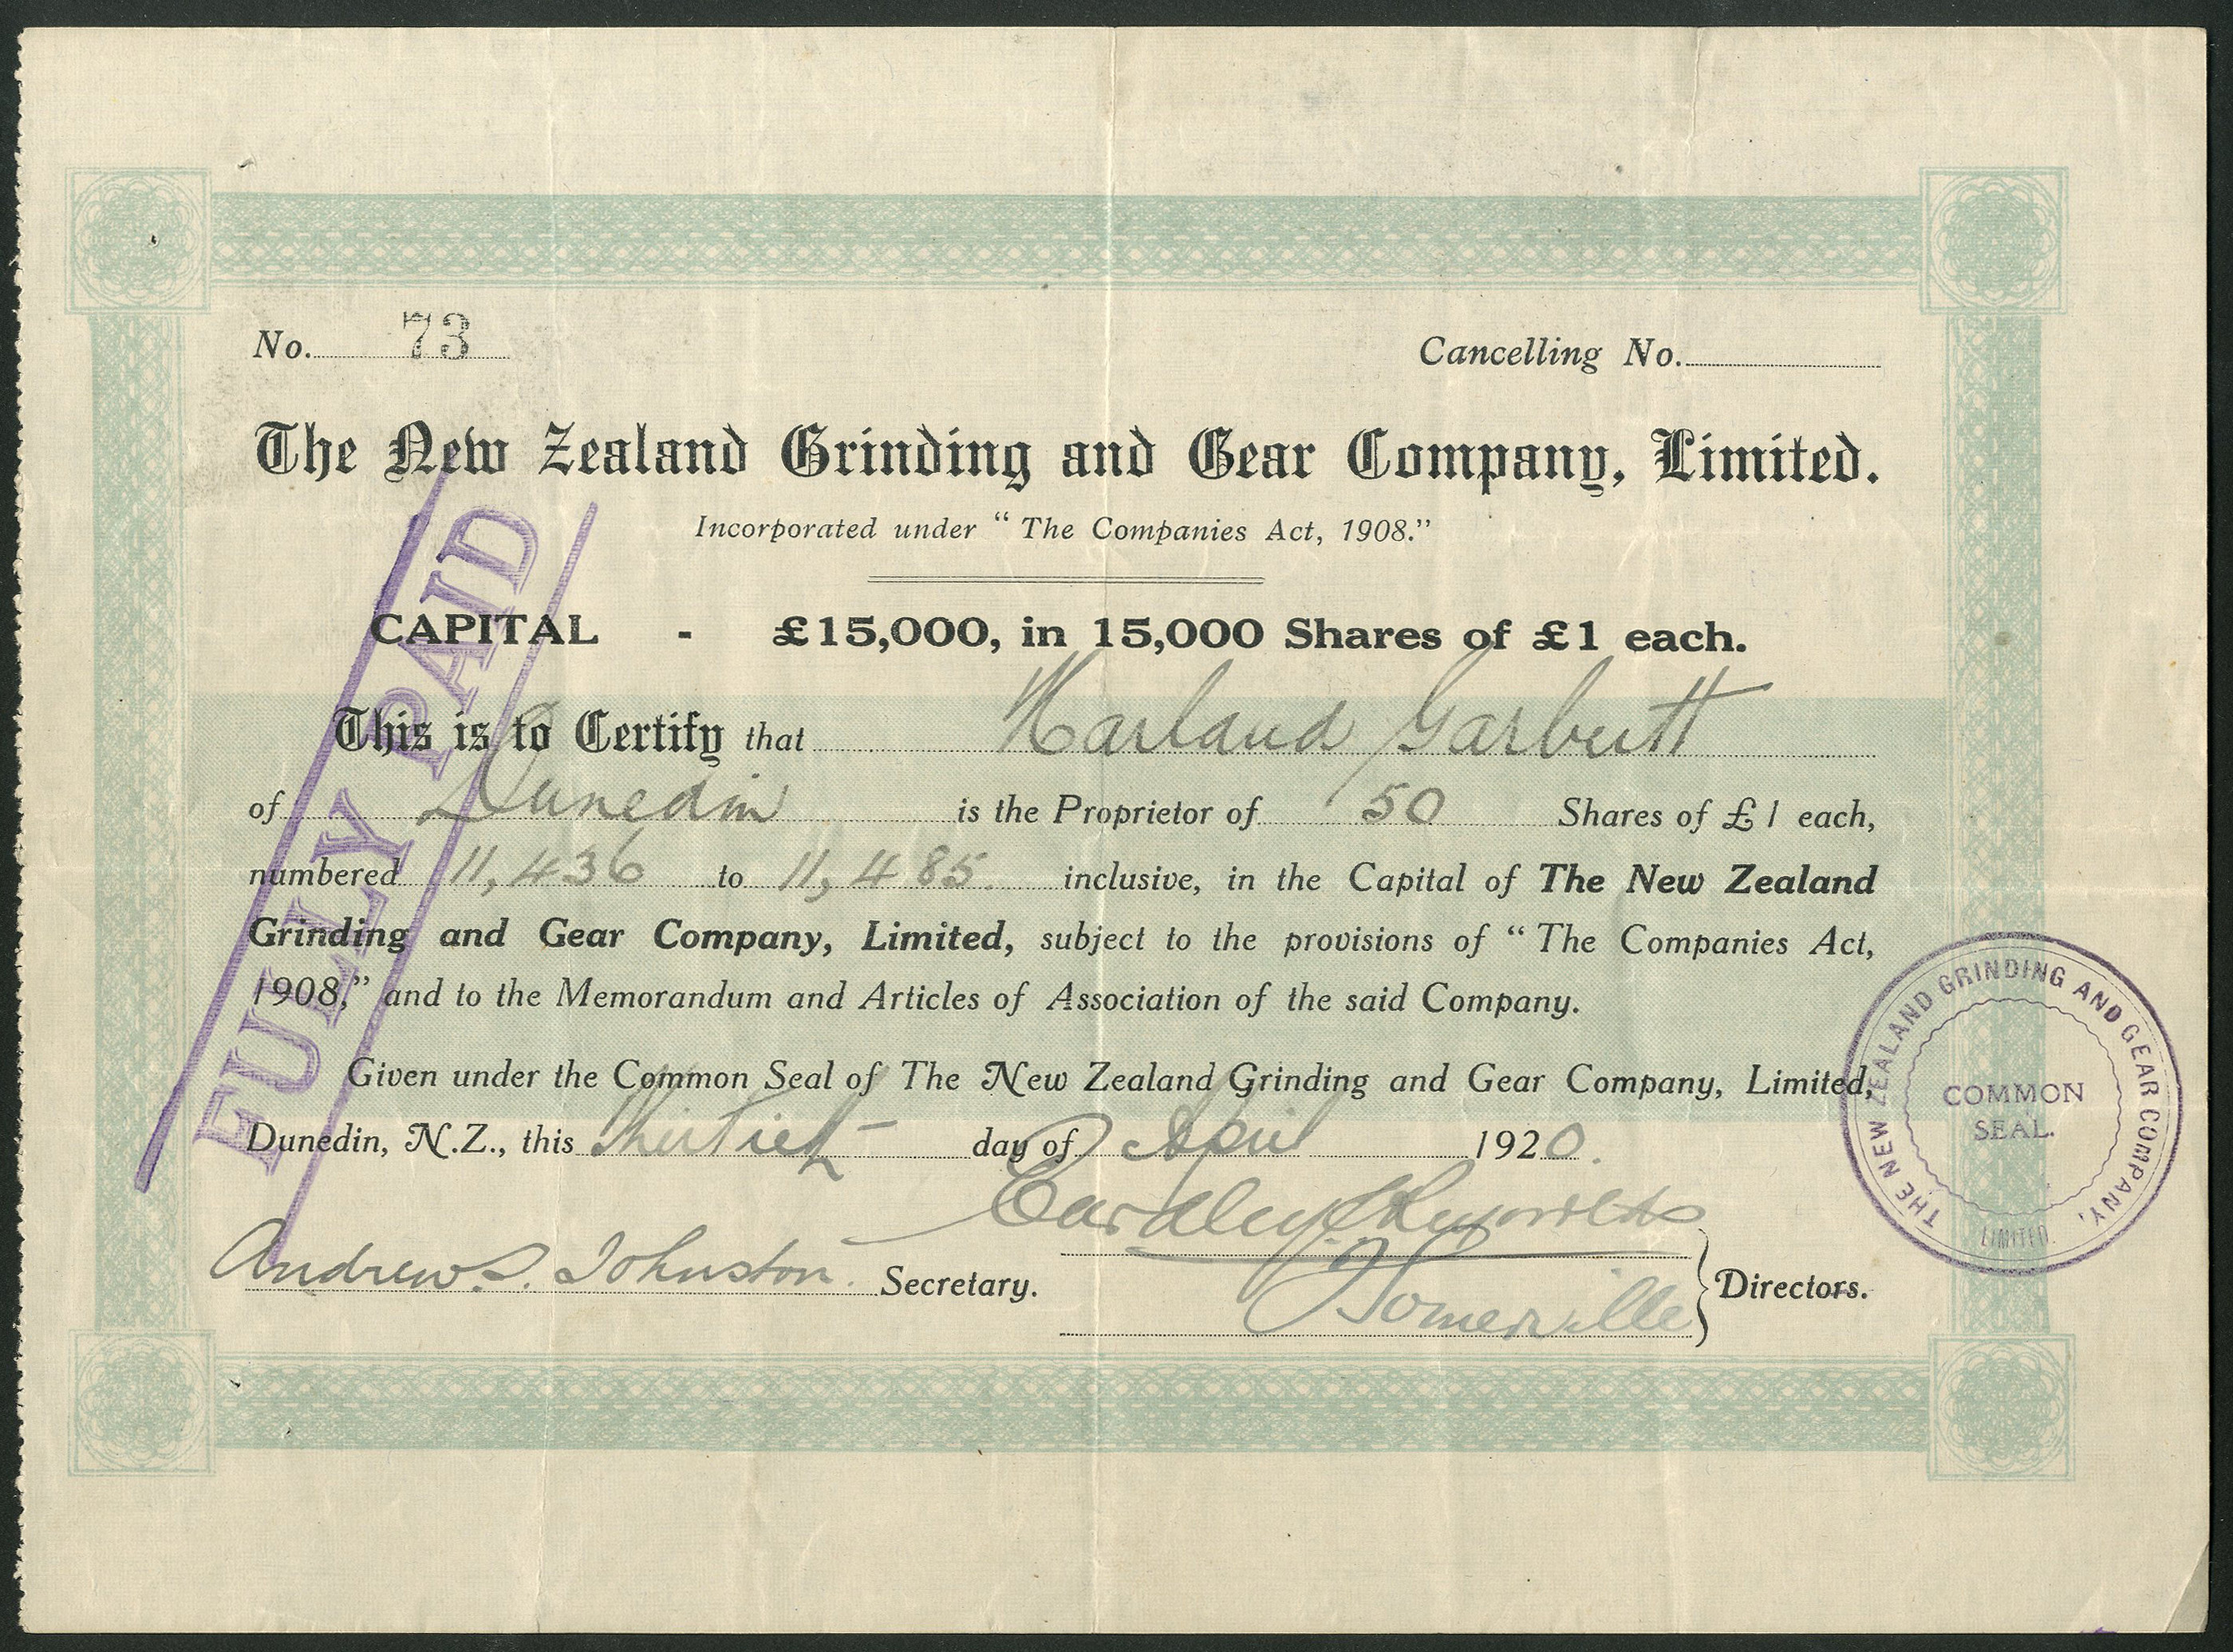 No. 73 Cancelling No.
The New Zealand Grinding and Gear Company, Limited.
Incorporated under "The Companies Act, 1908."
CAPITAL - £15,000, in 15,000 Shares of £1 each.
This is to Certify that Harland Garbutt
of Dunedin is the Proprietor of 50 Shares of £1 each,
numbered 11,436 to 11,485 inclusive, in the Capital of The New Zealand
Grinding and Gear Company, Limited, subject to the provisions of "The Companies Act,
1908," and to the Memorandum and Articles of Association of the said Company.
Given under the Common Seal of The New Zealand Grinding and Gear Company, Limited,
Dunedin, N.Z., this thirtieth day of April 1920.
Eardley Reynolds
Andrew S. Johnston. Secretary.
Somerville Directors.
FULLY PAID
THE NEW ZEALAND GRINDING AND GEAR COMPANY,
LIMITED.
COMMON
SEAL.